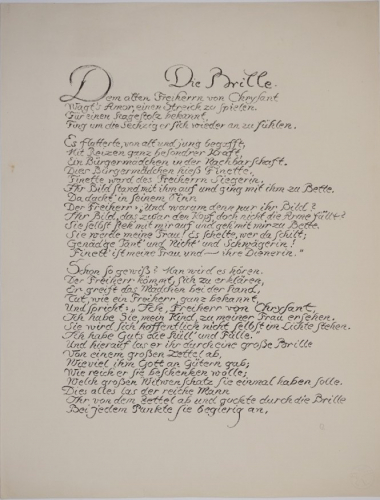 Die Brille.
Dem alten Freiherrn von Chrysant
Wagt's Amor, einen Streich zu spielen.
Für einen Hagestolz bekannt,
Fing um die Sechzig er sich wieder an zu fühlen.
Es flatterte, von alt und jung begafft,
Mit Reizen ganz besondrer Kraft,
Ein Bürgermädchen in der Nachbarschaft.
Dies Bürgermädchen hieß Finette.
Finette ward des Freiherrn Siegerin.
Ihr Bild stand mit ihm auf und ging mit ihm zu Bette.
Da dacht' in seinem Sinn
Der Freiherr: „Und warum denn nur ihr Bild?
Ihr Bild, das zwar den Kopf, doch nicht die Arme füllt?
Sie selbst steh' mit mir auf und geh' mit mir zu Bette.
Sie werde meine Frau! Es schelte, wer da schilt;
Genäd'ge Tant' und Nicht' und Schwägerin!
Finett' ist meine Frau und — ihre Dienerin."
Schon so gewiß? Man wird es hören.
Der Freiherr kömmt, sich zu erklären,
Er greift das Mädchen bei der Hand,
Tut, wie ein Freiherr, ganz bekannt,
Und spricht: „Ich, Freiherr von Chrysant,
Ich habe Sie, mein Kind, zu meiner Frau ersehen.
Sie wird sich hoffentlich nicht selbst im Lichte stehen.
Ich habe Guts die Hüll' und Fülle."
Und hierauf las er ihr durch eine große Brille
Von einem großen Zettel ab,
Wieviel ihm Gott an Gütern gab;
Wie reich er sie beschenken wolle;
Welch großen Witwenschatz sie einmal haben solle.
Dies alles las der reiche Mann
Ihr von dem Zettel ab und guckte durch die Brille
Bei jedem Punkte sie begierig an.